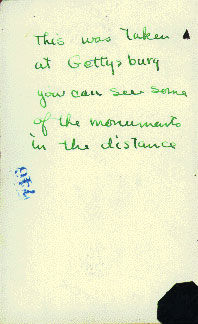 This was taken
at Gettysburg
you can see some
of the monuments
in the distance